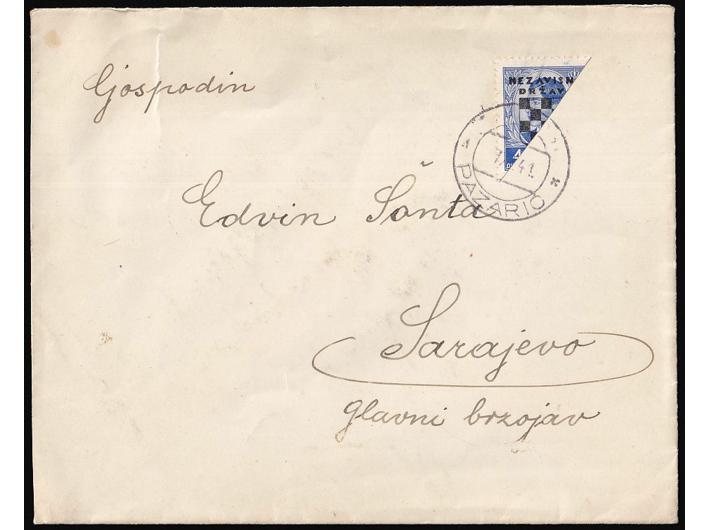 Gjospodin
NEZAVISN
DRŽAV
4
7/ 41.
PAZARIĆ
Edvin Šonta
Sarajevo
glavni brzojav